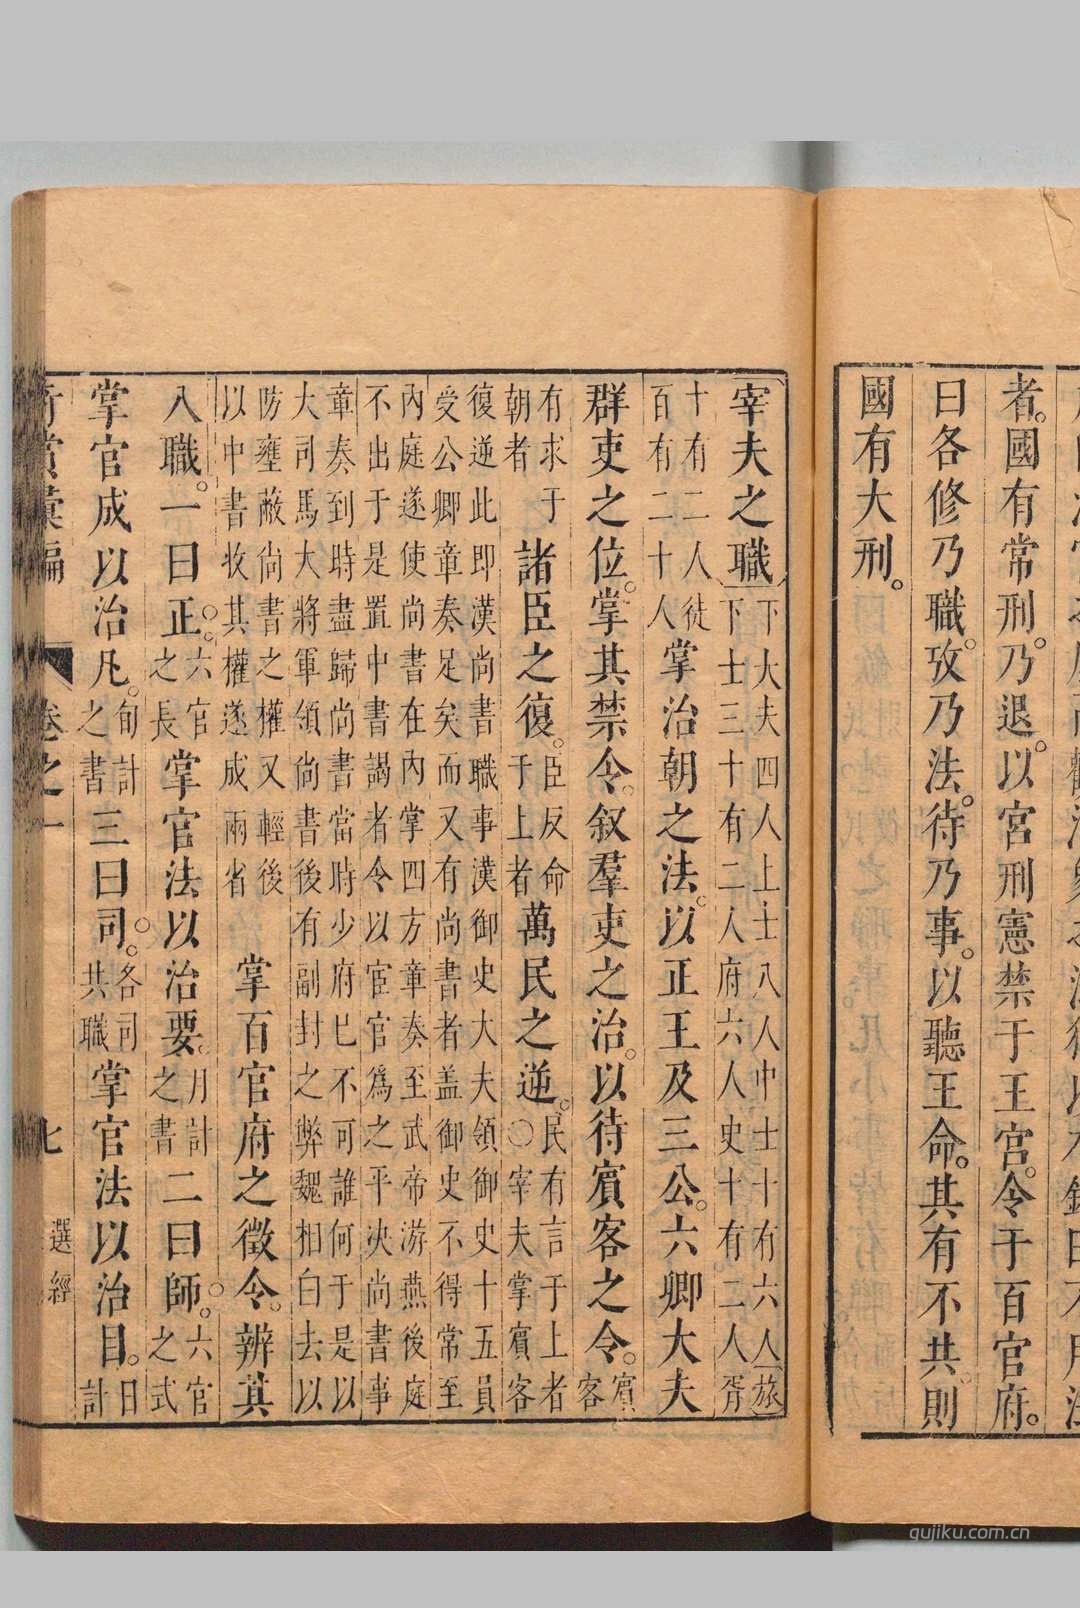 者。國有常刑。乃退。以宮刑憲禁于王宮。令于百官府。
曰各修乃職。攷乃法。待乃事。以聽王命。其有不共。則
國有大刑。
宰夫之職下大夫四人上士八人中士十有六人旅下士三十有二人府六人史十有二人胥
十有二人徒百有二十人掌治朝之法。以正王及三公。六卿大夫
群吏之位。掌其禁令。叙羣吏之治。以待賓客之令。賓客
有求于朝者諸臣之復。臣反命于上者萬民之逆。民有言于上者○宰夫掌賓客
復逆此即漢尚書職事漢御史大夫領御史十五員
受公卿章奏足矣而又有尚書者盖御史不得常至
內庭遂使尚書在內掌四方章奏至武帝游燕後庭
不出于是置中書謁者令以宦官爲之平決尚書事
章奏到時盡歸尚書當時少府已不可誰何于是以
大司馬大將軍領尚書後有副封之弊魏相白去以
防壅蔽尚書之權又輕後以中書收其權遂成兩省掌百官府之徵令。辨其
八職。一曰正。六官之長掌官法以治要。月計之書二曰師。六官之式
掌官成以治凡。旬計之書三曰司。各司共職掌官法以治目。日計
彙編 卷之一 七 選經
gujiku.com.cn